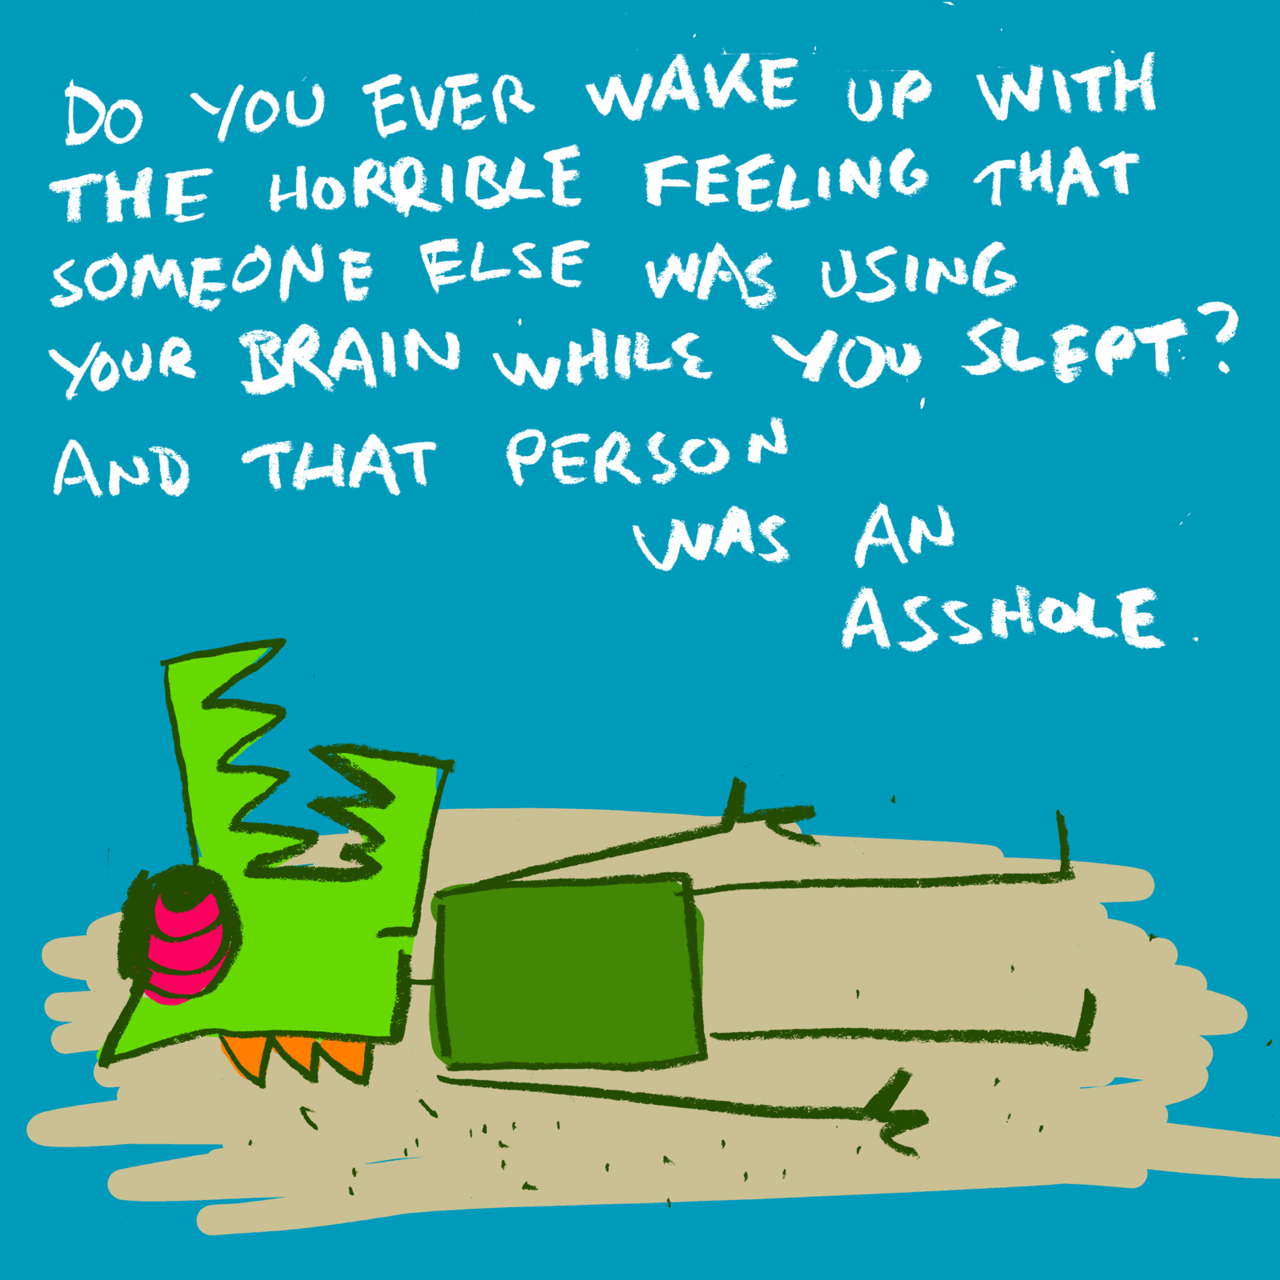 DO YOU EVER WAKE UP WITH
THE HORRIBLE FEELING THAT
SOMEONE ELSE WAS USING
YOUR BRAIN WHILE YOU SLEPT?
AND THAT PERSON
WAS AN
ASSHOLE.